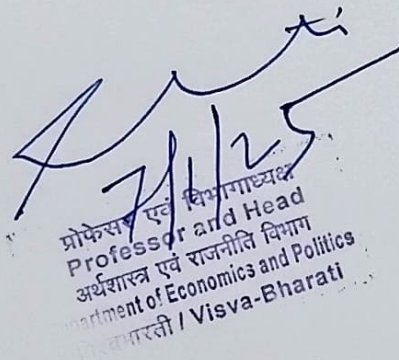 7/1/25
प्रोफेसर एवं विभागाध्यक्ष
Professor and Head
अर्थशास्त्र एवं राजनीति विभाग
Department of Economics and Politics
विश्वभारती / Visva-Bharati